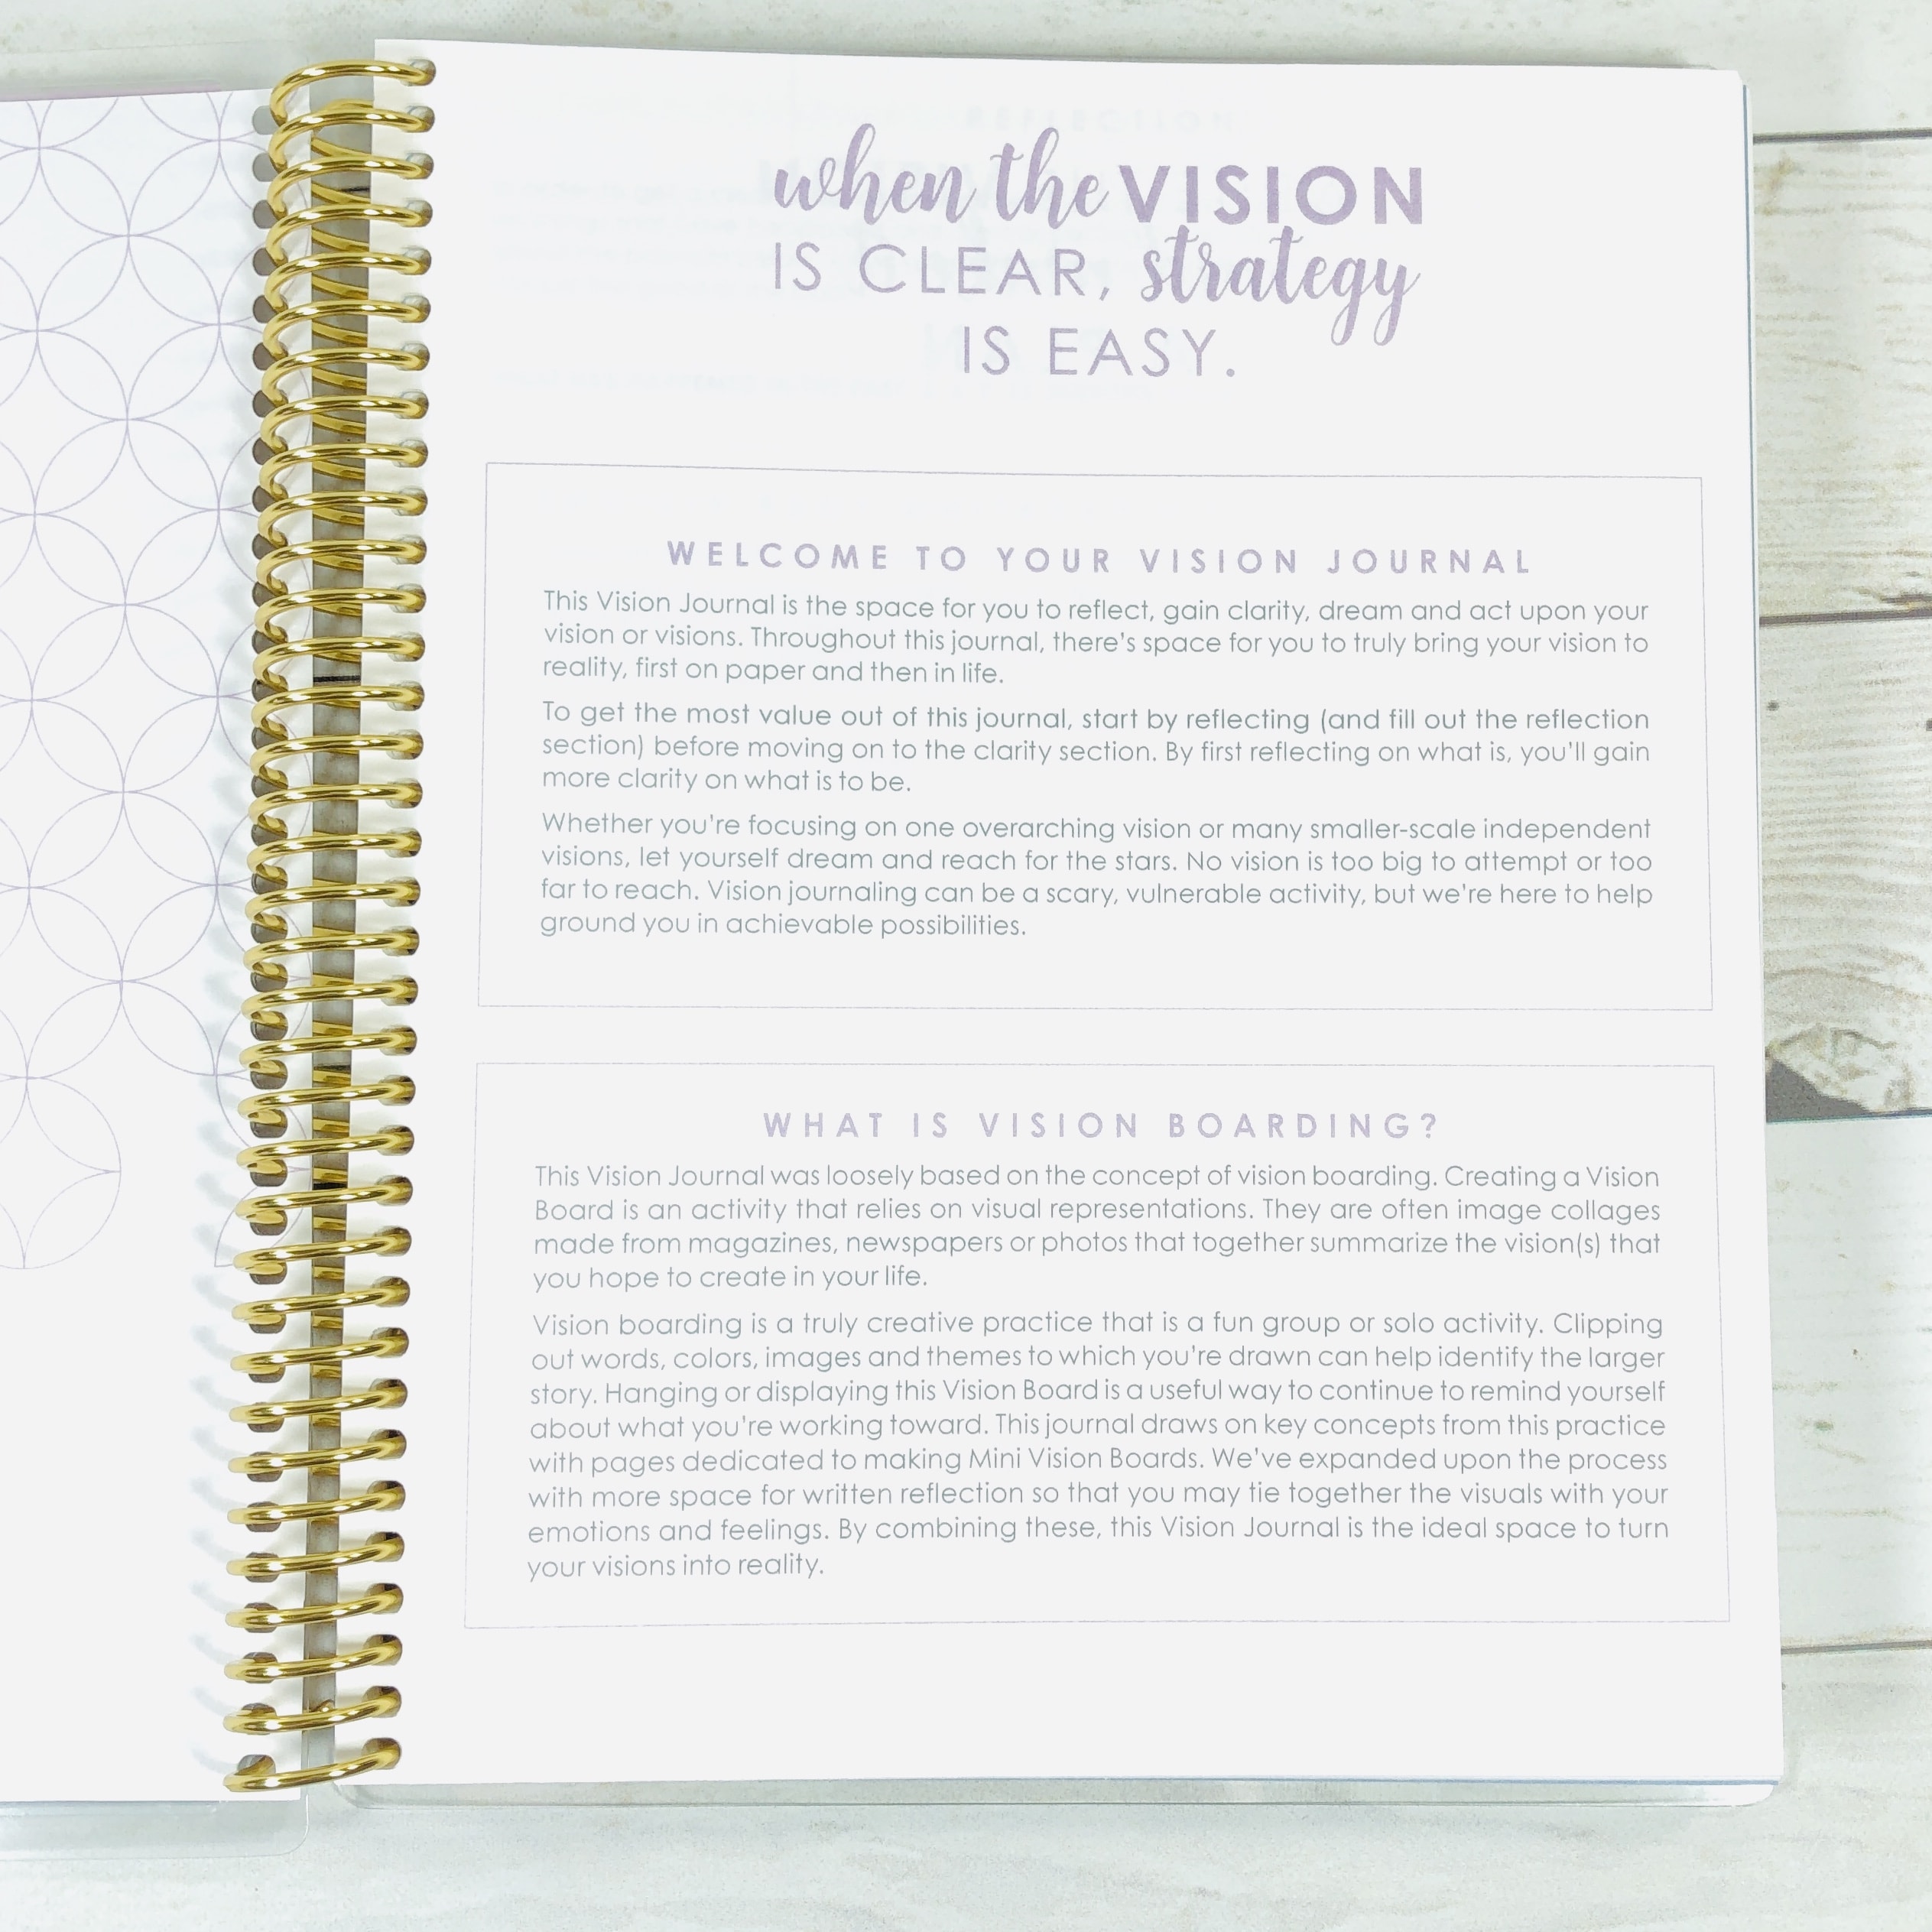 when the VISION
IS CLEAR, strategy
IS EASY.
WELCOME TO YOUR VISION JOURNAL
This Vision Journal is the space for you to reflect, gain clarity, dream and act upon your
vision or visions. Throughout this journal, there's space for you to truly bring your vision to
reality, first on paper and then in life.
To get the most value out of this journal, start by reflecting (and fill out the reflection
section) before moving on to the clarity section. By first reflecting on what is, you'll gain
more clarity on what is to be.
Whether you're focusing on one overarching vision or many smaller-scale independent
visions, let yourself dream and reach for the stars. No vision is too big to attempt or too
far to reach. Vision journaling can be a scary, vulnerable activity, but we're here to help
ground you in achievable possibilities.
WHAT IS VISION BOARDING?
This Vision Journal was loosely based on the concept of vision boarding. Creating a Vision
Board is an activity that relies on visual representations. They are often image collages
made from magazines, newspapers or photos that together summarize the vision(s) that
you hope to create in your life.
Vision boarding is a truly creative practice that is a fun group or solo activity. Clipping
out words, colors, images and themes to which you're drawn can help identify the larger
story. Hanging or displaying this Vision Board is a useful way to continue to remind yourself
about what you're working toward. This journal draws on key concepts from this practice
with pages dedicated to making Mini Vision Boards. We've expanded upon the process
with more space for written reflection so that you may tie together the visuals with your
emotions and feelings. By combining these, this Vision Journal is the ideal space to turn
your visions into reality.